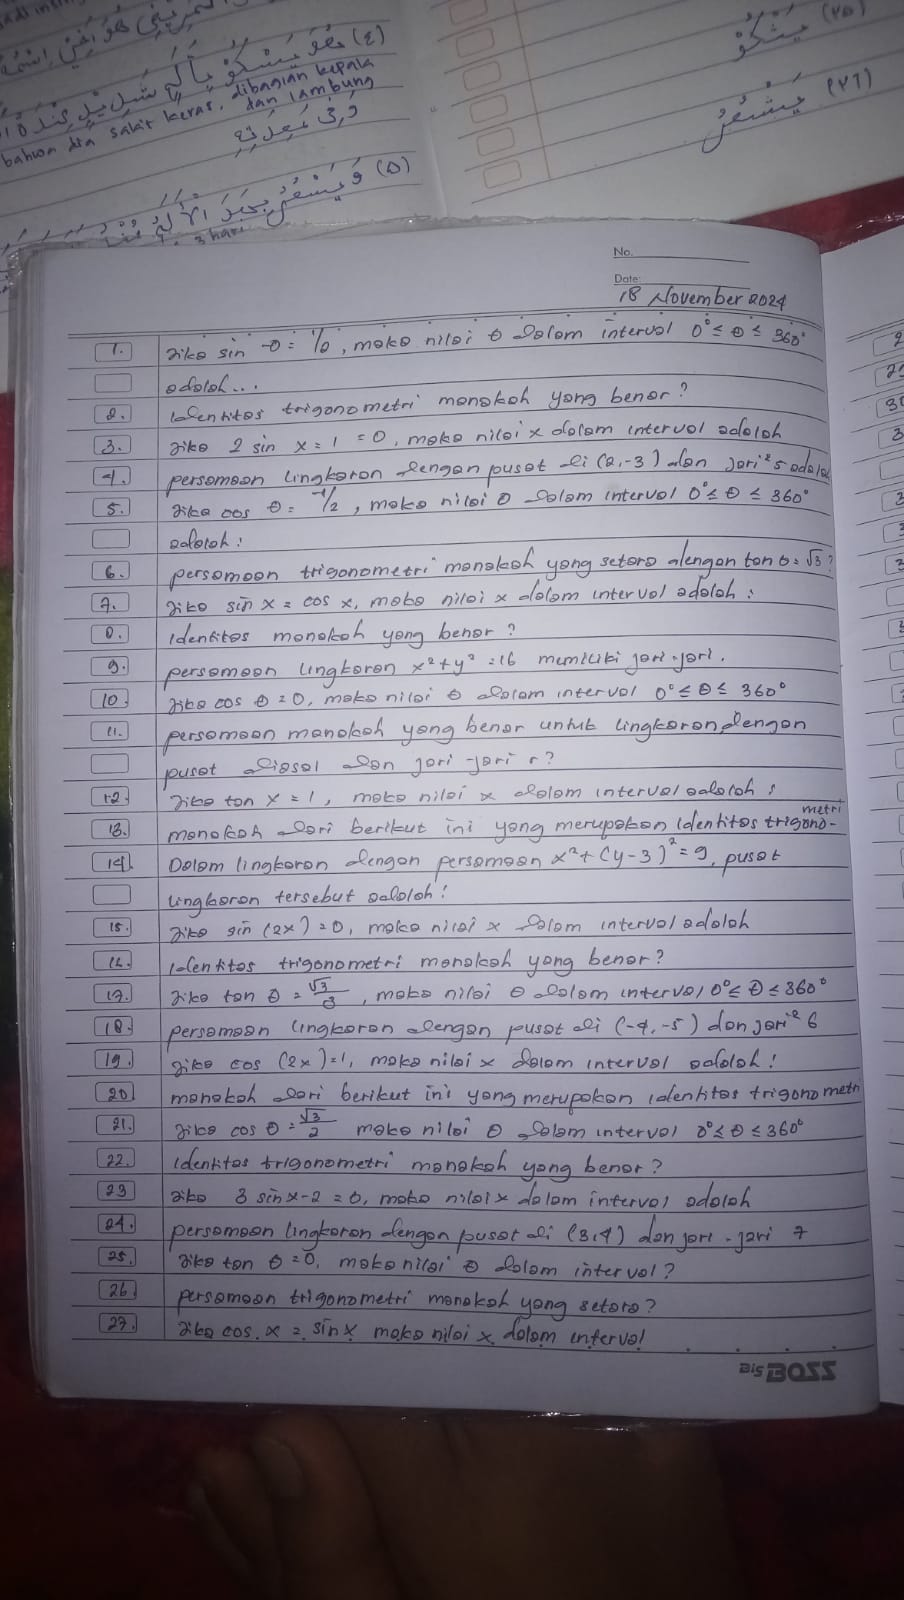 (٤) هُوَ يَشْكُوْ
bahwa dia sakit keras, dibagian kepala
dan lambung
(٥)
3 hari
(٢٥) يَشْكُوْ
(٢٦) يَشْعُرُ
No.
Date:
18 November 2024
1. Jika sin θ = 1/2, maka nilai θ dalam interval 0° ≤ θ ≤ 360°
adalah...
2. Identitas trigonometri manakah yang benar?
3. Jika 2 sin x = 1 = 0, maka nilai x dalam interval adalah
4. persamaan lingkaran dengan pusat di (2,-3) dan jari² 5 adalah
5. Jika cos θ = -1/2, maka nilai θ dalam interval 0° ≤ θ ≤ 360°
adalah:
6. persamaan trigonometri manakah yang setara dengan tan θ = √3?
7. Jika sin x = cos x, maka nilai x dalam interval adalah:
8. Identitas manakah yang benar?
9. persamaan lingkaran x² + y² = 16 memiliki jari-jari.
10. Jika cos θ = 0, maka nilai θ dalam interval 0° ≤ θ ≤ 360°
11. persamaan manakah yang benar untuk lingkaran, dengan
pusat diasal dan jari-jari r?
12. Jika tan x = 1, maka nilai x dalam interval adalah:
13. manakah dari berikut ini yang merupakan identitas trigono-
metri
14. Dalam lingkaran dengan persamaan x² + (y-3)² = 9, pusat
lingkaran tersebut adalah!
15. Jika sin (2x) = 0, maka nilai x dalam interval adalah
16. Identitas trigonometri manakah yang benar?
17. Jika tan θ = √3/3, maka nilai θ dalam interval 0° ≤ θ ≤ 360°
18. persamaan lingkaran dengan pusat di (-4,-5) dan jari² 6
19. Jika cos (2x) = 1, maka nilai x dalam interval adalah!
20 manakah dari berikut ini yang merupakan identitas trigonometri
21. Jika cos θ = √3/2 maka nilai θ dalam interval 0° ≤ θ ≤ 360°
22. Identitas trigonometri manakah yang benar?
23 Jika 3 sin x - 2 = 0, maka nilai x dalam interval adalah
24. persamaan lingkaran dengan pusat di (3,4) dan jari-jari 7
25. Jika tan θ = 0, maka nilai θ dalam interval?
26 persamaan trigonometri manakah yang setara?
27. Jika cos. x = sin x maka nilai x dalam interval
Bis BOSS